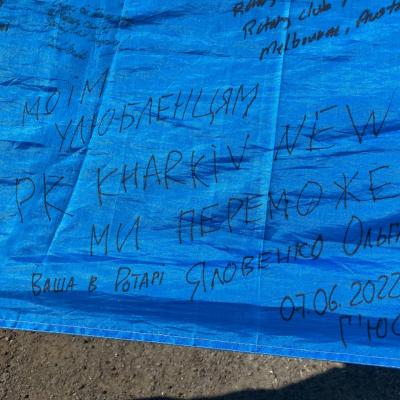 Rotary club
Melbourne, Aust
МОЇМ
УЛЮБЛЕНЦЯМ
РК KHARKIV NEW
МИ ПЕРЕМОЖЕ
Ваша в Ротарі Яловенко Ольга
07.06.2022
Г'ЮС